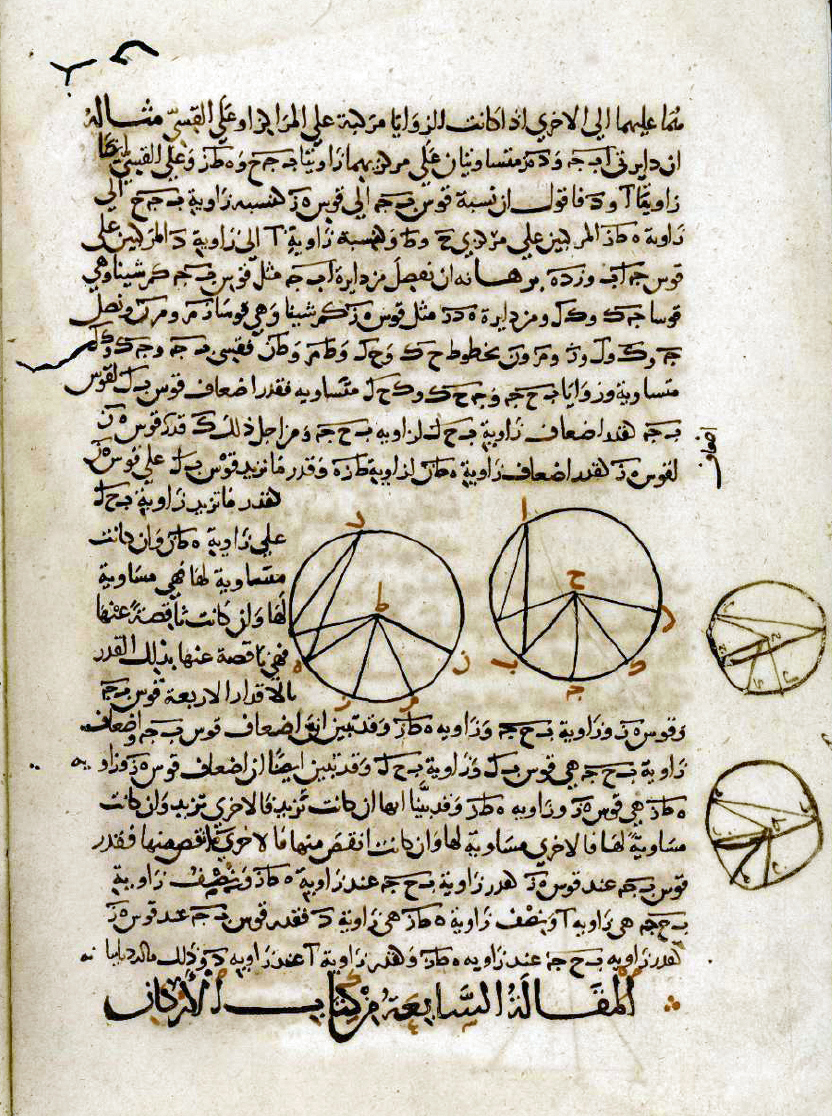 عليهما الى الاخرى اذا كانت الزوايا مركبة على المراكز او على القسي مثاله
ان دايرتي ا ب جـ و د ه ز متساويتان على مركزيهما زاويتا ب ح جـ و ه ط ز وعلى القسي
زاويتا ا و د فاقول ان نسبة قوس ب جـ الى قوس ه ز كنسبة زاوية ب ح جـ الى
زاوية ه ط ز المركبتين على مركزي ح و ط وكنسبة زاوية ا الى زاوية د المركبتين على
قوس برهانه ان نفصل من دايرة ا ب جـ مثل قوس ب جـ كم شينا وهي
قوسا جـ ك و ك ل ومن دايرة ه د ز مثل قوس ه ز كم شينا وهي قوسا ز م و م ن ونصل
خطوط ح ك و ح ل و ط م و ط ن فقسي ب جـ و جـ ك و ك ل
متساوية وزوايا ب ح جـ و جـ ح ك و ك ح ل متساويه فقدر اضعاف قوس ب ل لقوس
ب جـ كقدر اضعاف زاوية ب ح ل لزاويه ب ح جـ ومن اجل ذلك قدر قوس ه ن
اضعاف
لقوس ه ز كقدر اضعاف زاوية ه ط ن لزاوية ه ط ز وقدر ما تزيد قوس ب ل على قوس ه ن
كقدر ما تزيد زاوية ب ح ل
على زاوية ه ط ن وان كانت
متساوية لها فهي مساوية
لها وان كانت ناقصة عنها
فهي ناقصة عنها بذلك القدر
بالاقدار الاربعة قوس ب جـ
د
ط
ه
ن
م
ز
ا
ح
ب
جـ
ك
ل
وقوس ه ز وزاوية ب ح جـ وزاويه ه ط ز وقد تبين ان اضعاف قوس ب جـ واضعاف
زاوية ب ح جـ هي قوس ب ل وزاوية ب ح ل وقد تبين ايضا ان اضعاف قوس ه ز وزاويه
ه ط ز هي قوس ه ن وزاويه ه ط ن وقد بينا انها ان كانت تزيد فالاخرى تزيد وان كانت
مساوية لها فالاخرى مساوية لها وان كانت انقص منها فالاخرى انقص منها فقدر
قوس ب جـ عند قوس ه ز كقدر زاوية ب ح جـ عند زاوية ه ط ز ونصف زاوية
ب ح جـ هي زاويه ا ونصف زاوية ه ط ز هي زاوية د فقدر قوس ب جـ عند قوس ه ز
كقدر زاويه ب ح جـ عند زاويه ه ط ز وكقدر زاوية ا عند زاويه د وذلك ما اردنا
المقالة السابعة من كتاب الاركان